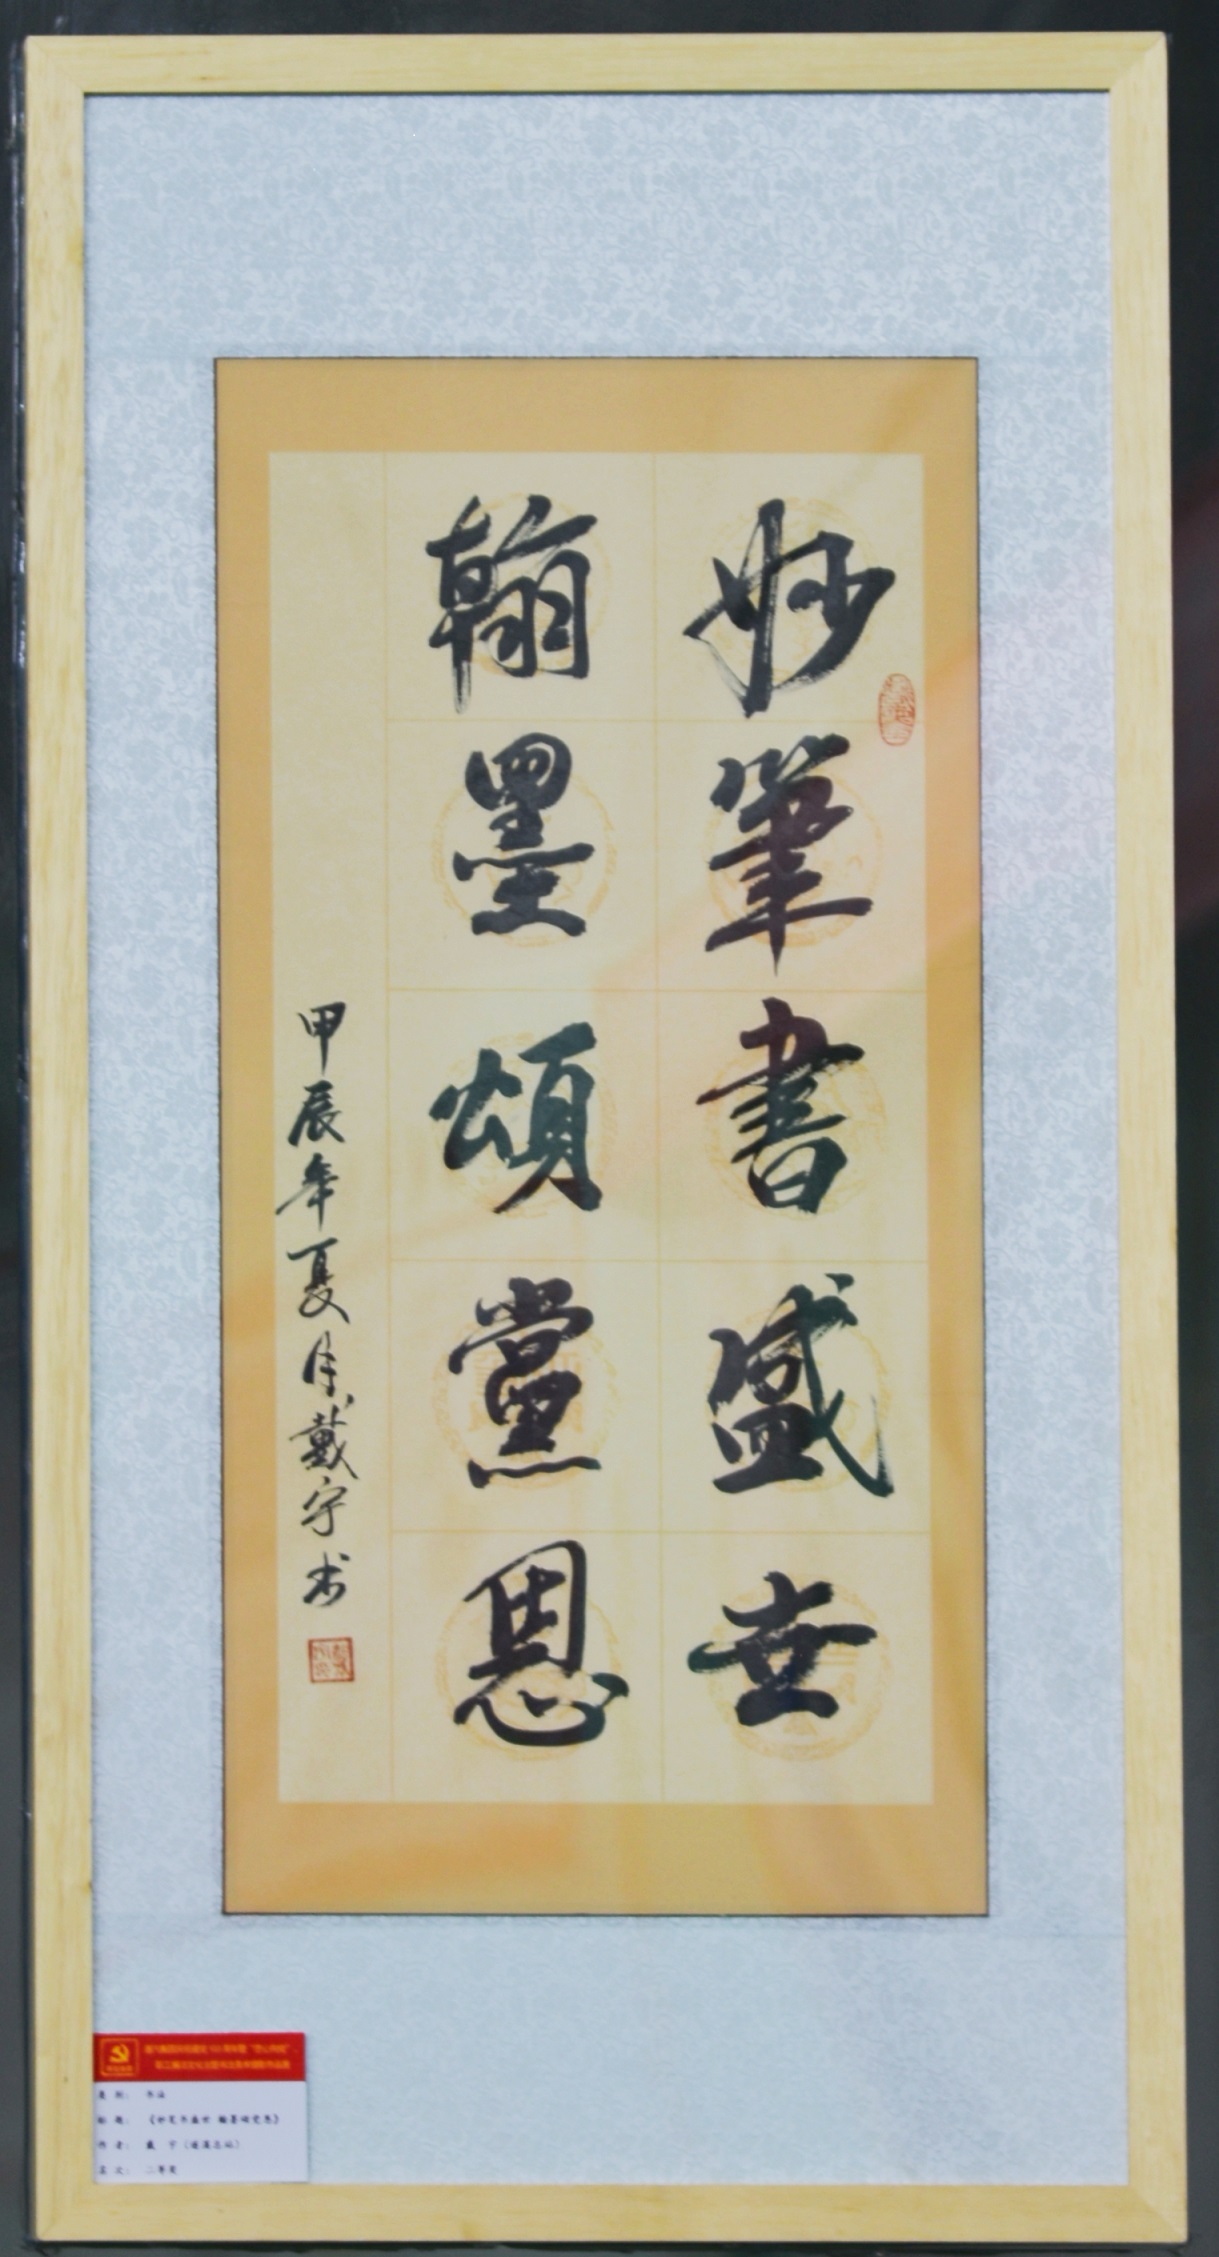 妙筆書盛世
翰墨頌黨恩
甲辰年夏月戴宇书
类 别： 书法
标 题： 《妙笔书盛世 翰墨颂党恩》
作 者： 戴 宇
奖 次： 二等奖